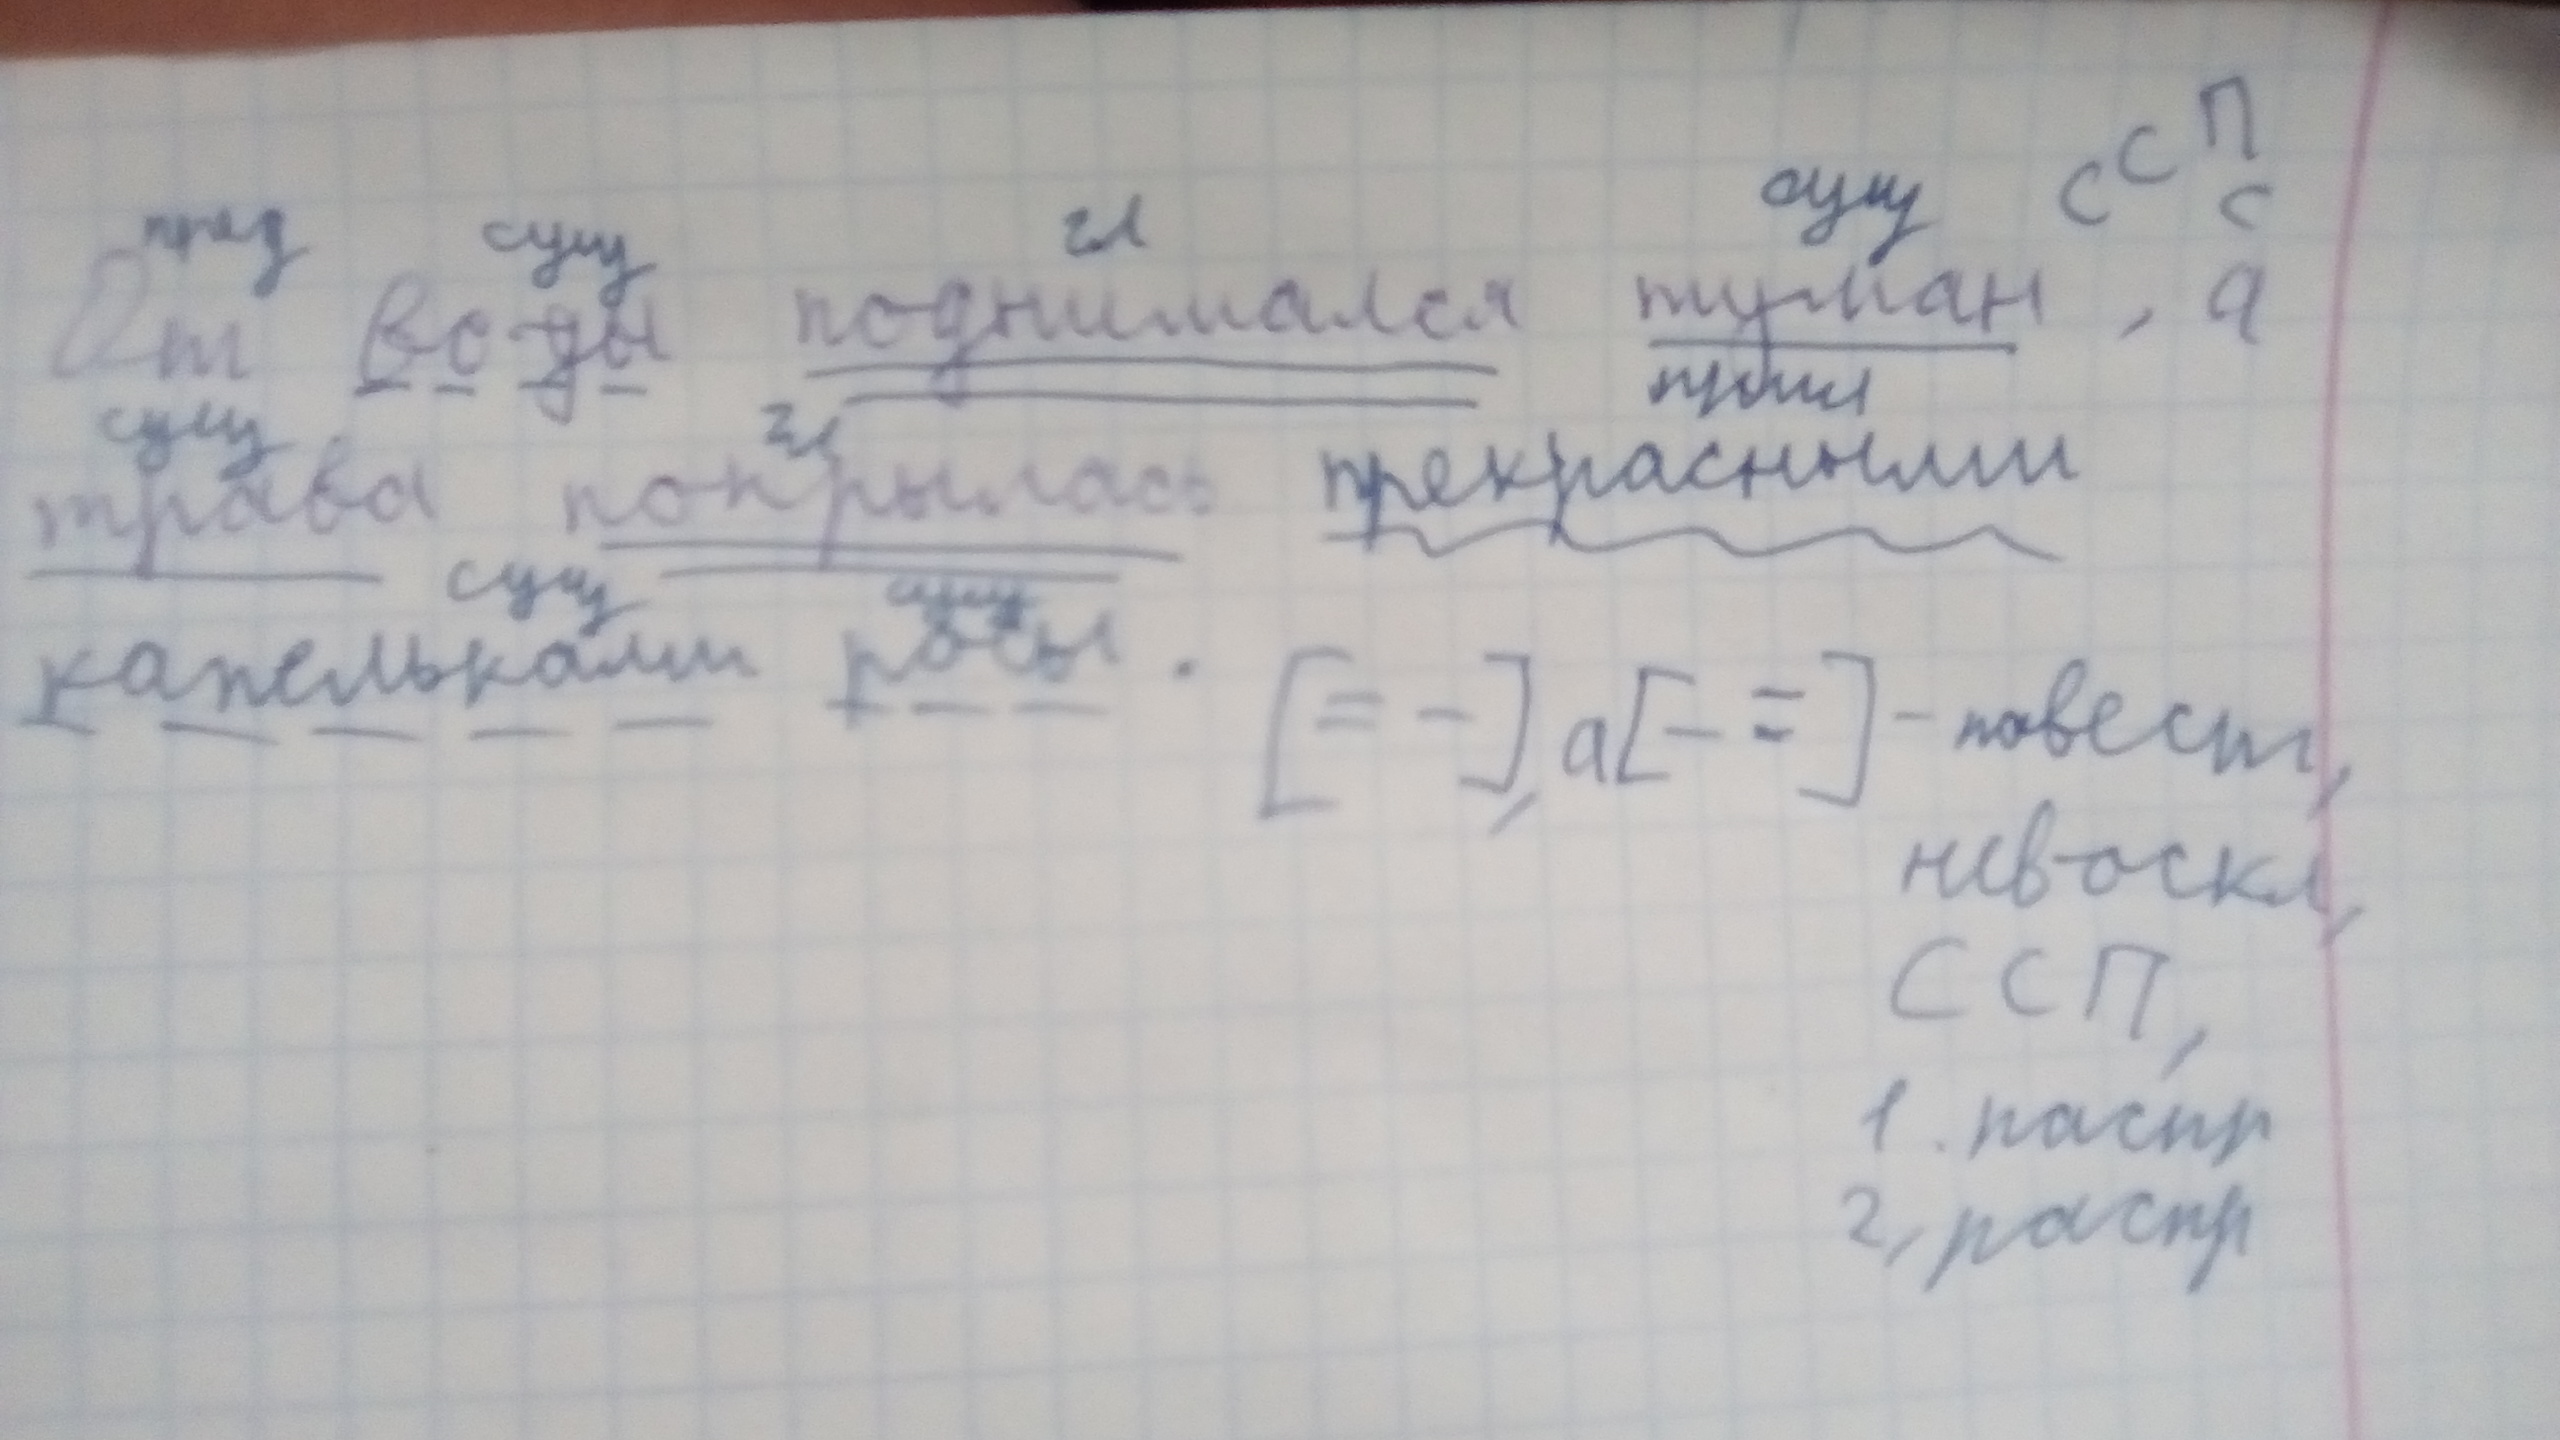 ССП
пред сущ гл сущ с
От воды поднимался туман, а
сущ гл прил
трава покрылась прекрасными
сущ сущ
капельками росы. [= -], а [- =] - повест,
невоскл,
ССП,
1. распр
2, распр